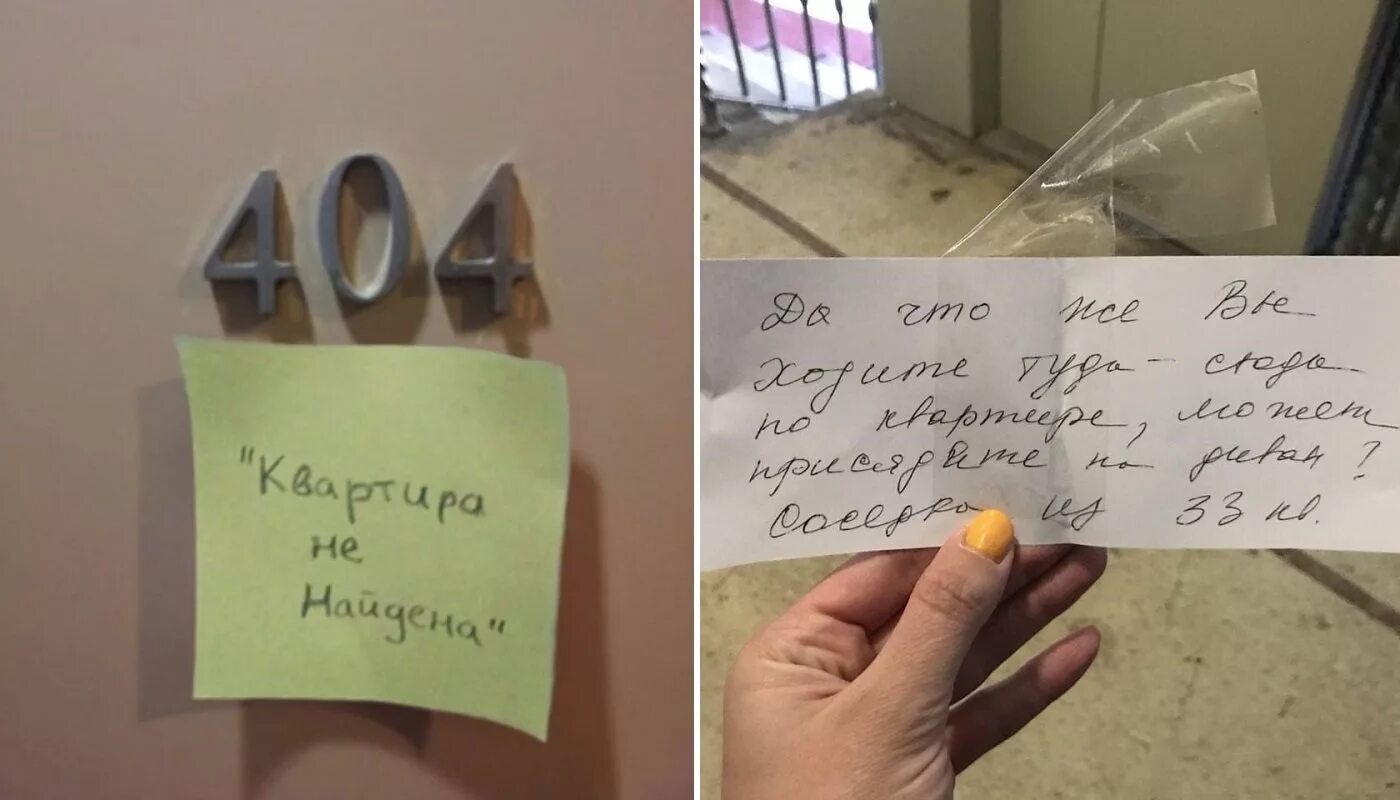 404
"Квартира
не
Найдена"
Да что же Вы
ходите туда-сюда
по квартире, может
присядьте на диван?
Соседка из 33 кв.